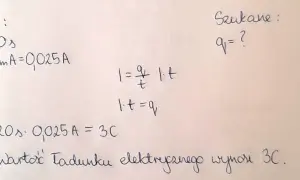 :
Szukane:
0s
q=?
mA=0,025A
I=q/t |·t
I·t=q
20s·0,025A=3C
Wartość ładunku elektrycznego wynosi 3C.